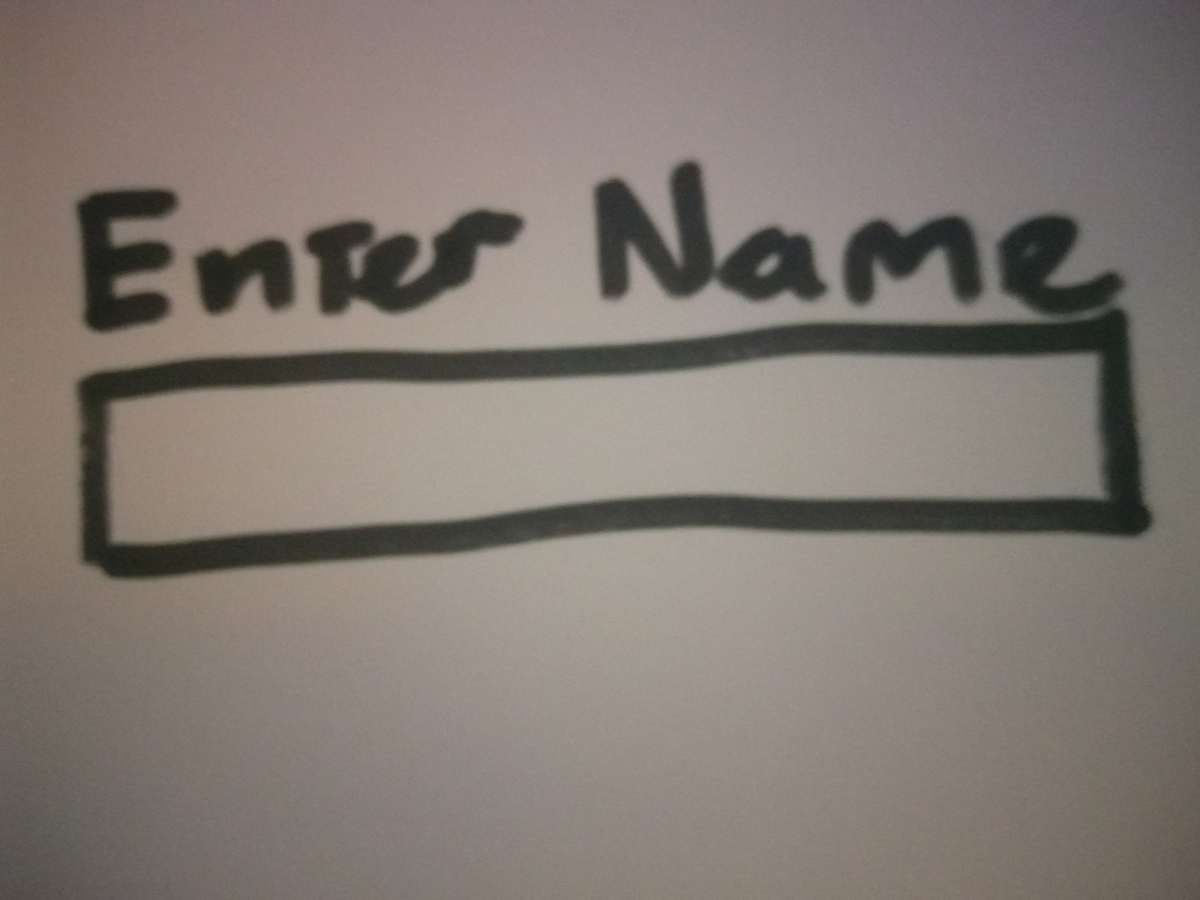 Enter Name